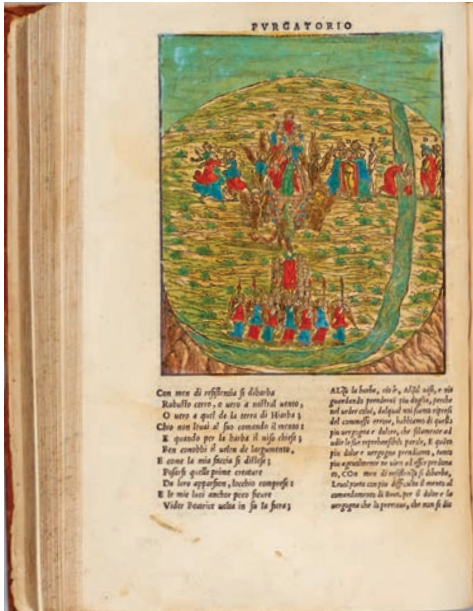 PVRGATORIO
Con men di resistentia si dibarba
Robusto cerro, o uero a nostral uento,
O uero a quel de la terra di Hiarba;
Chio non leuai al suo comando il mento:
E quando per la barba il uiso chiese;
Ben conobbi il uelen de largumento,
E come la mia faccia si distese;
Posarsi quelle prime creature
Da loro apparsion, locchio comprese;
E le mie luci anchor poco sicure
Vider Beatrice uolta in su la fiera;
ALZa la barba, cio è, Alza il uiso, e
guardando prenderai piu doglia, perche
nel ueder colui, dalqual noi siamo ripresi
del commesso errore, habbiamo di quello
piu uergogna e dolore, che solamente ad
udir le sue reprehensibili parole, E quanto
piu dolore e uergogna prendiamo, tanto
piu ageuolmente ne uien ad esser perdona
to, COn men di resistentia si dibarba,
Leual porta con piu difficulta il mento al
comandamento di Beat. per il dolore e la
uergogna che la premeua, che non si dis